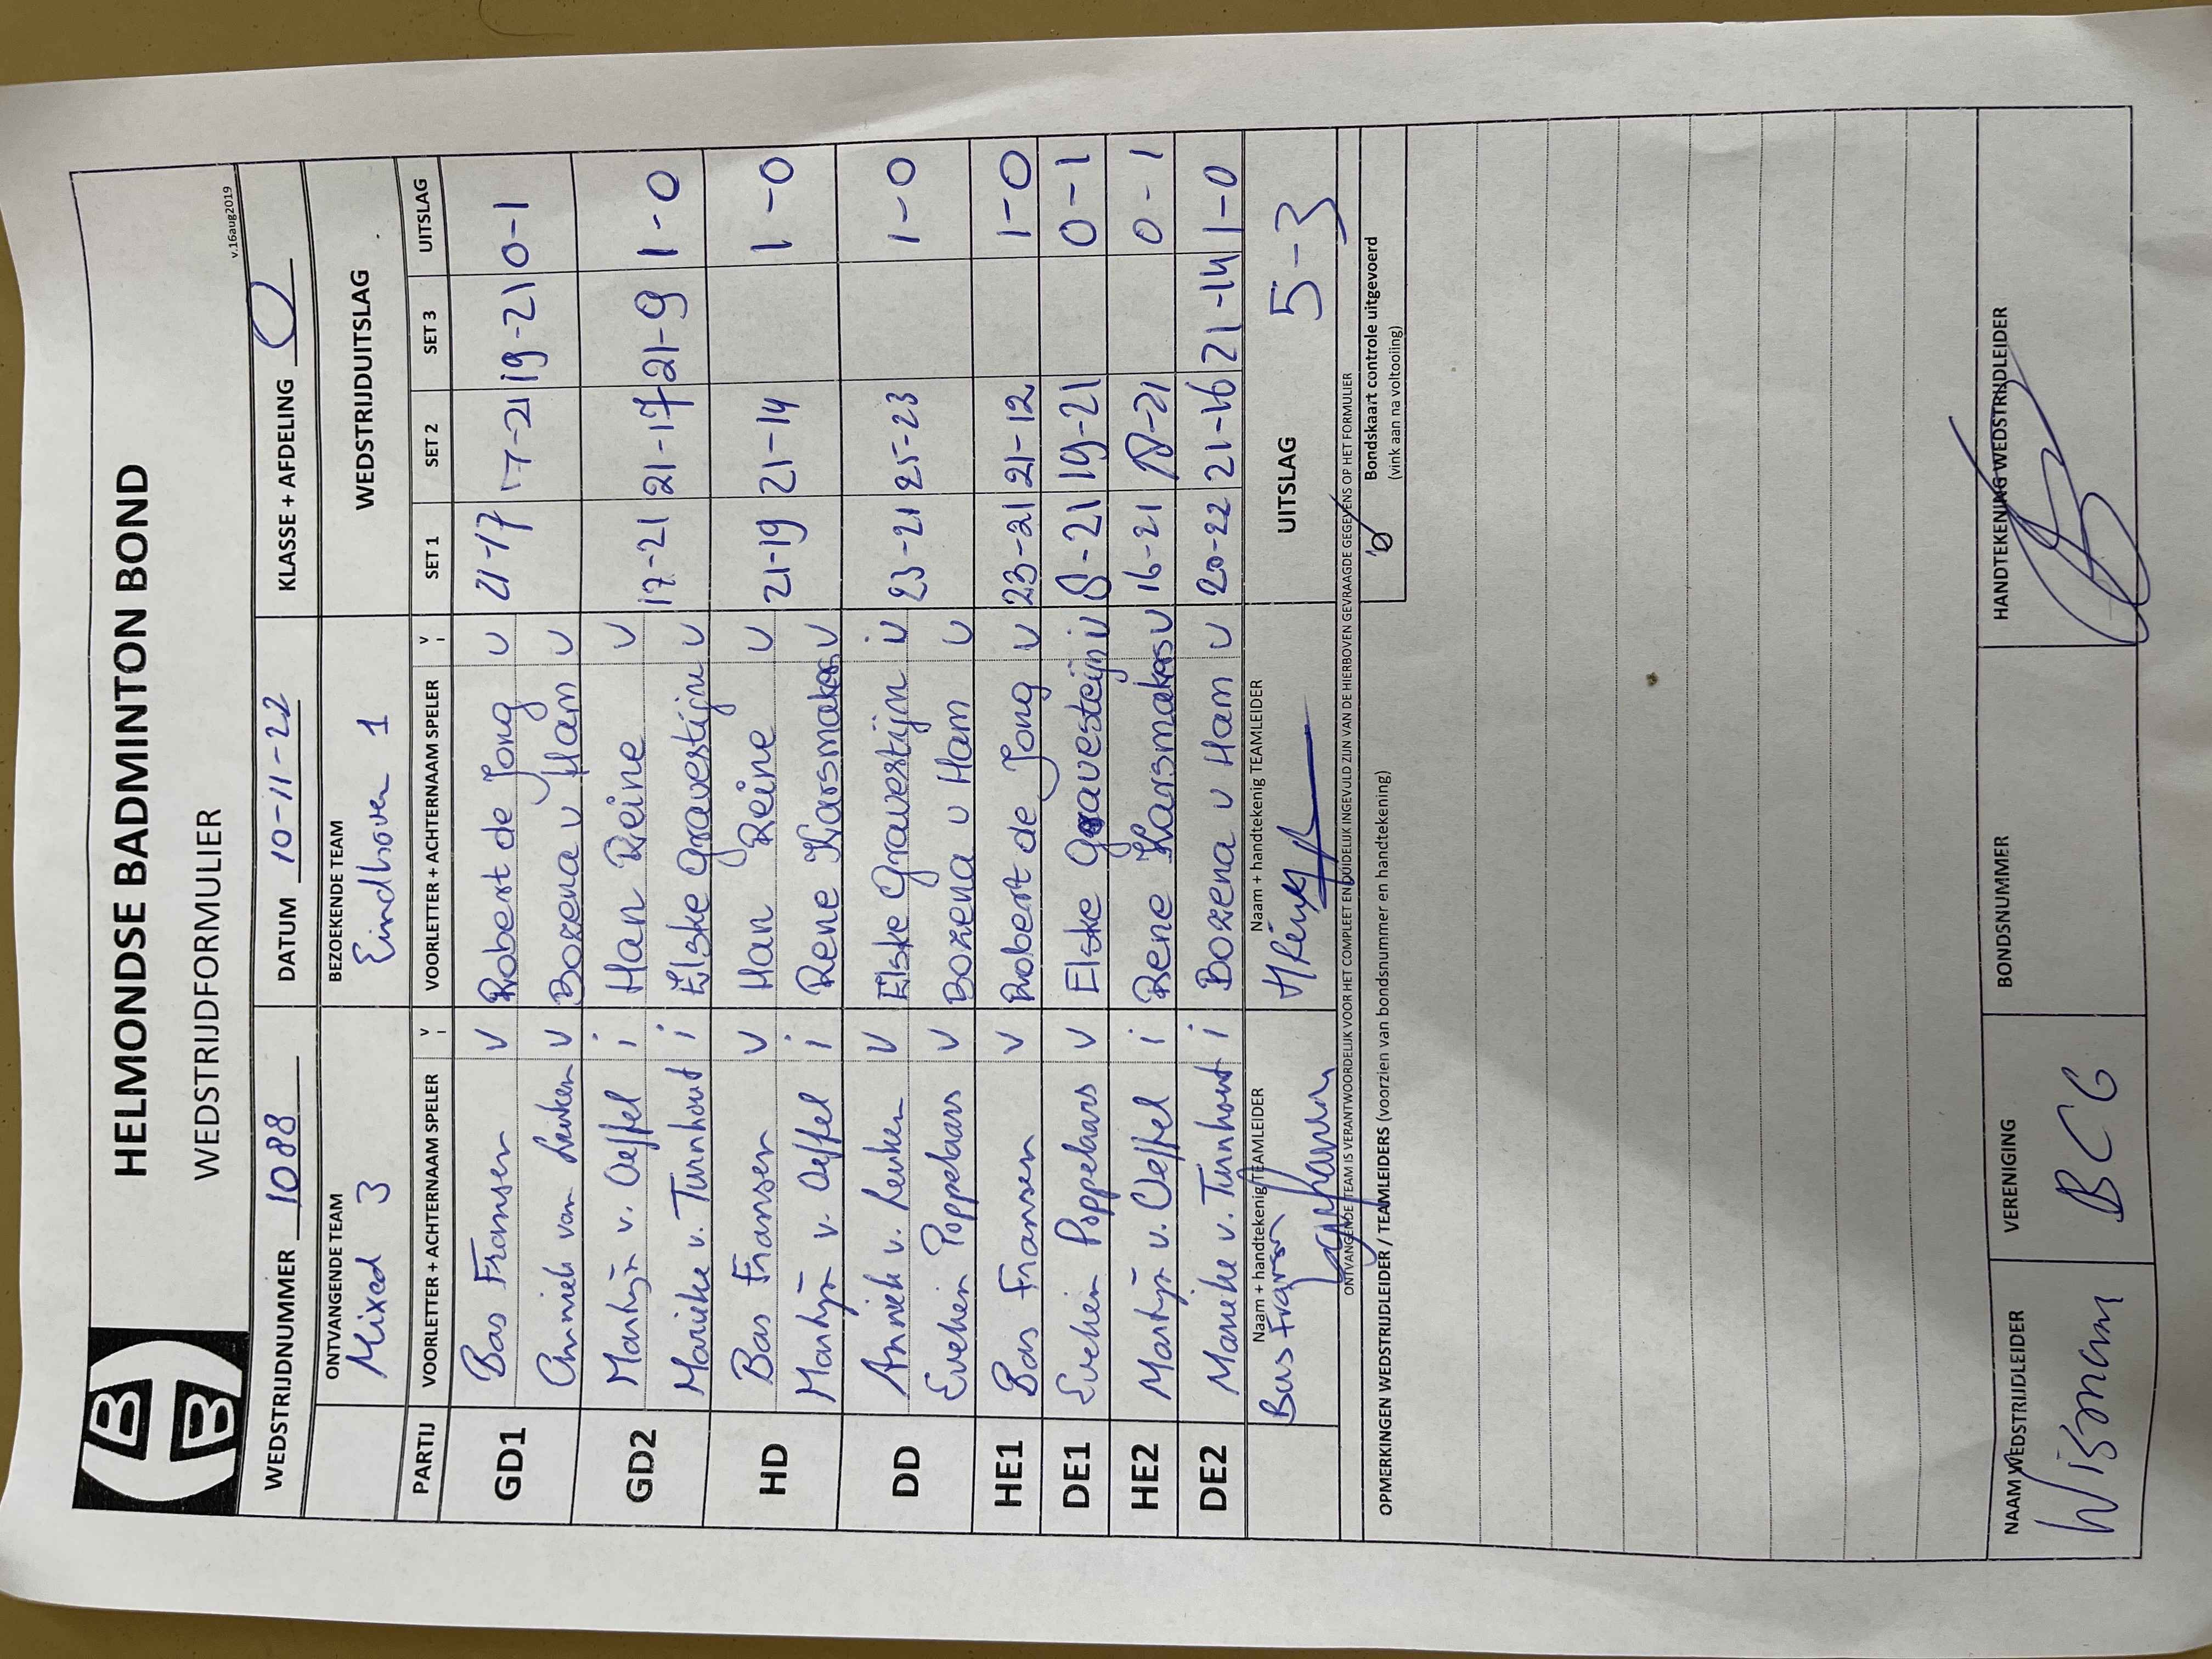 HELMONDSE BADMINTON BOND
WEDSTRIJDFORMULIER
v.16aug2019
WEDSTRIJDNUMMER 1088 DATUM 10-11-22 KLASSE + AFDELING O
ONTVANGENDE TEAM BEZOEKENDE TEAM WEDSTRIJDUITSLAG
Mixed 3 Eindhoven 1
PARTIJ VOORLETTER + ACHTERNAAM SPELER V I VOORLETTER + ACHTERNAAM SPELER V I SET 1 SET 2 SET 3 UITSLAG
GD1 Bas Fransen V Robert de Jong V 21-17 17-21 19-21 0-1
Anniek van Leuken V Bozena v Ham V
GD2 Martijn v. Oeffel i Han Reine V 17-21 21-17 21-9 1-0
Marieke v. Turnhout i Elske Gravestijn V
HD Bas Fransen V Han Reine V 21-19 21-14 1-0
Martijn v. Oeffel i Rene Karsmakers V
DD Anniek v. Leuken V Elske Gravestijn V 23-21 25-23 1-0
Evelien Poppelaars V Bozena v Ham V
HE1 Bas Fransen V Robert de Jong V 23-21 21-12 1-0
DE1 Evelien Poppelaars V Elske Gravesteijn V 8-21 19-21 0-1
HE2 Martijn v. Oeffel i Rene Karsmakers V 16-21 18-21 0-1
DE2 Marieke v. Turnhout i Bozena v Ham V 20-22 21-16 21-14 1-0
Naam + handtekenig TEAMLEIDER Naam + handtekenig TEAMLEIDER UITSLAG 5-3
Bas Fransen HReine
ONTVANGENDE TEAM IS VERANTWOORDELIJK VOOR HET COMPLEET EN DUIDELIJK INGEVULD ZIJN VAN DE HIERBOVEN GEVRAAGDE GEGEVENS OP HET FORMULIER
OPMERKINGEN WEDSTRIJDLEIDER / TEAMLEIDERS (voorzien van bondsnummer en handtekening)
Bondskaart controle uitgevoerd
(vink aan na voltooiing)
NAAM WEDSTRIJDLEIDER VERENIGING BONDSNUMMER HANDTEKENING WEDSTRIJDLEIDER
Wismann BCG